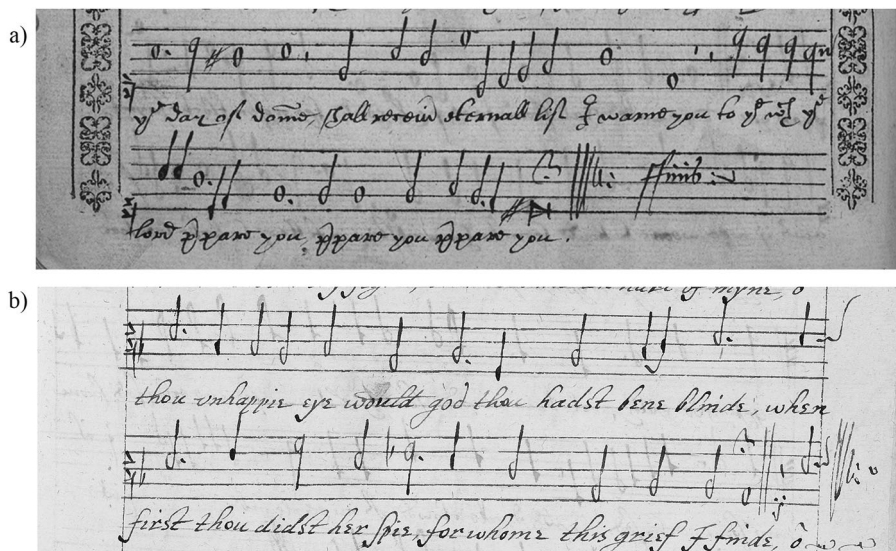 a)
yͤ day of dome, shall receiu eternall life I warne you to yͤ wͨͪ yͤ
ffinis
lord p̱pare you, p̱pare you p̱pare you.
b)
of myne, o
thou vnhappie eye would god thou hadst bene blinde, when
first thou didst her spie, for whome this grief I finde, ô